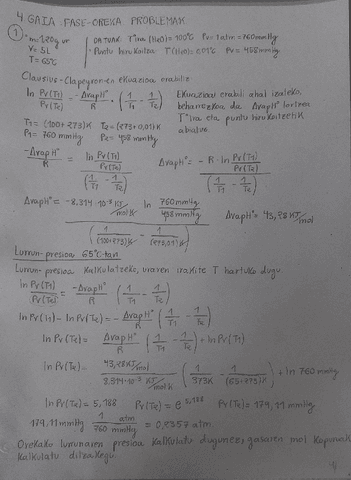 4. GAIA: FASE-OREKA PROBLEMAK
① · m=1,20g ur
V= 5L
T= 65°C
DATUAK: T ira (H2O)=100°C Pv=1atm=760mmHg
· Puntu hirukoitza T(H2O)=0,01°C Pv=4,58mmHg
Clausius-Clapeyron-en ekuazioa erabiliz
ln Pv(T1)/Pv(T2) = -ΔvapH°/R · (1/T1 - 1/T2)
Ekuazioa erabili ahal izateko,
beharrezkoa da ΔvapH° lortzea
T°ira eta puntu hirukoitzetik
abiatuz.
T1= (100+273)K T2= (273+0,01)K
P1= 760 mmHg P2= 4,58 mmHg
-ΔvapH°/R = ln Pv(T1)/Pv(T2) / (1/T1 - 1/T2) ΔvapH°= -R · ln Pv(T1)/Pv(T2) / (1/T1 - 1/T2)
ΔvapH°= -8,314·10⁻³ KJ/molK ln 760mmHg/4,58mmHg / (1/(100+273)K - 1/(273,01)K) ΔvapH°= 43,28 KJ/mol
Lurrun-presioa 65°C-tan
Lurrun-presioa kalkulatzeko, uraren irakite T hartuko dugu
ln Pv(T1)/Pv(T2) = -ΔvapH°/R (1/T1 - 1/T2)
ln Pv(T1) - ln Pv(T2) = - ΔvapH°/R (1/T1 - 1/T2)
ln Pv(T2) = ΔvapH°/R (1/T1 - 1/T2) + ln Pv(T1)
ln Pv(T2) = 43,28 KJ/mol / 8,314·10⁻³ KJ/molK (1/373K - 1/(65+273)K) + ln 760 mmHg
ln Pv(T2) = 5,188 Pv(T2) = e^5,188 Pv(T2) = 179,11 mmHg
179,11 mmHg 1 atm/760 mmHg = 0,2357 atm
Orekako lurrunaren presioa kalkulatu dugunez, gasaren mol kopurua
kalkulatu dezakegu.